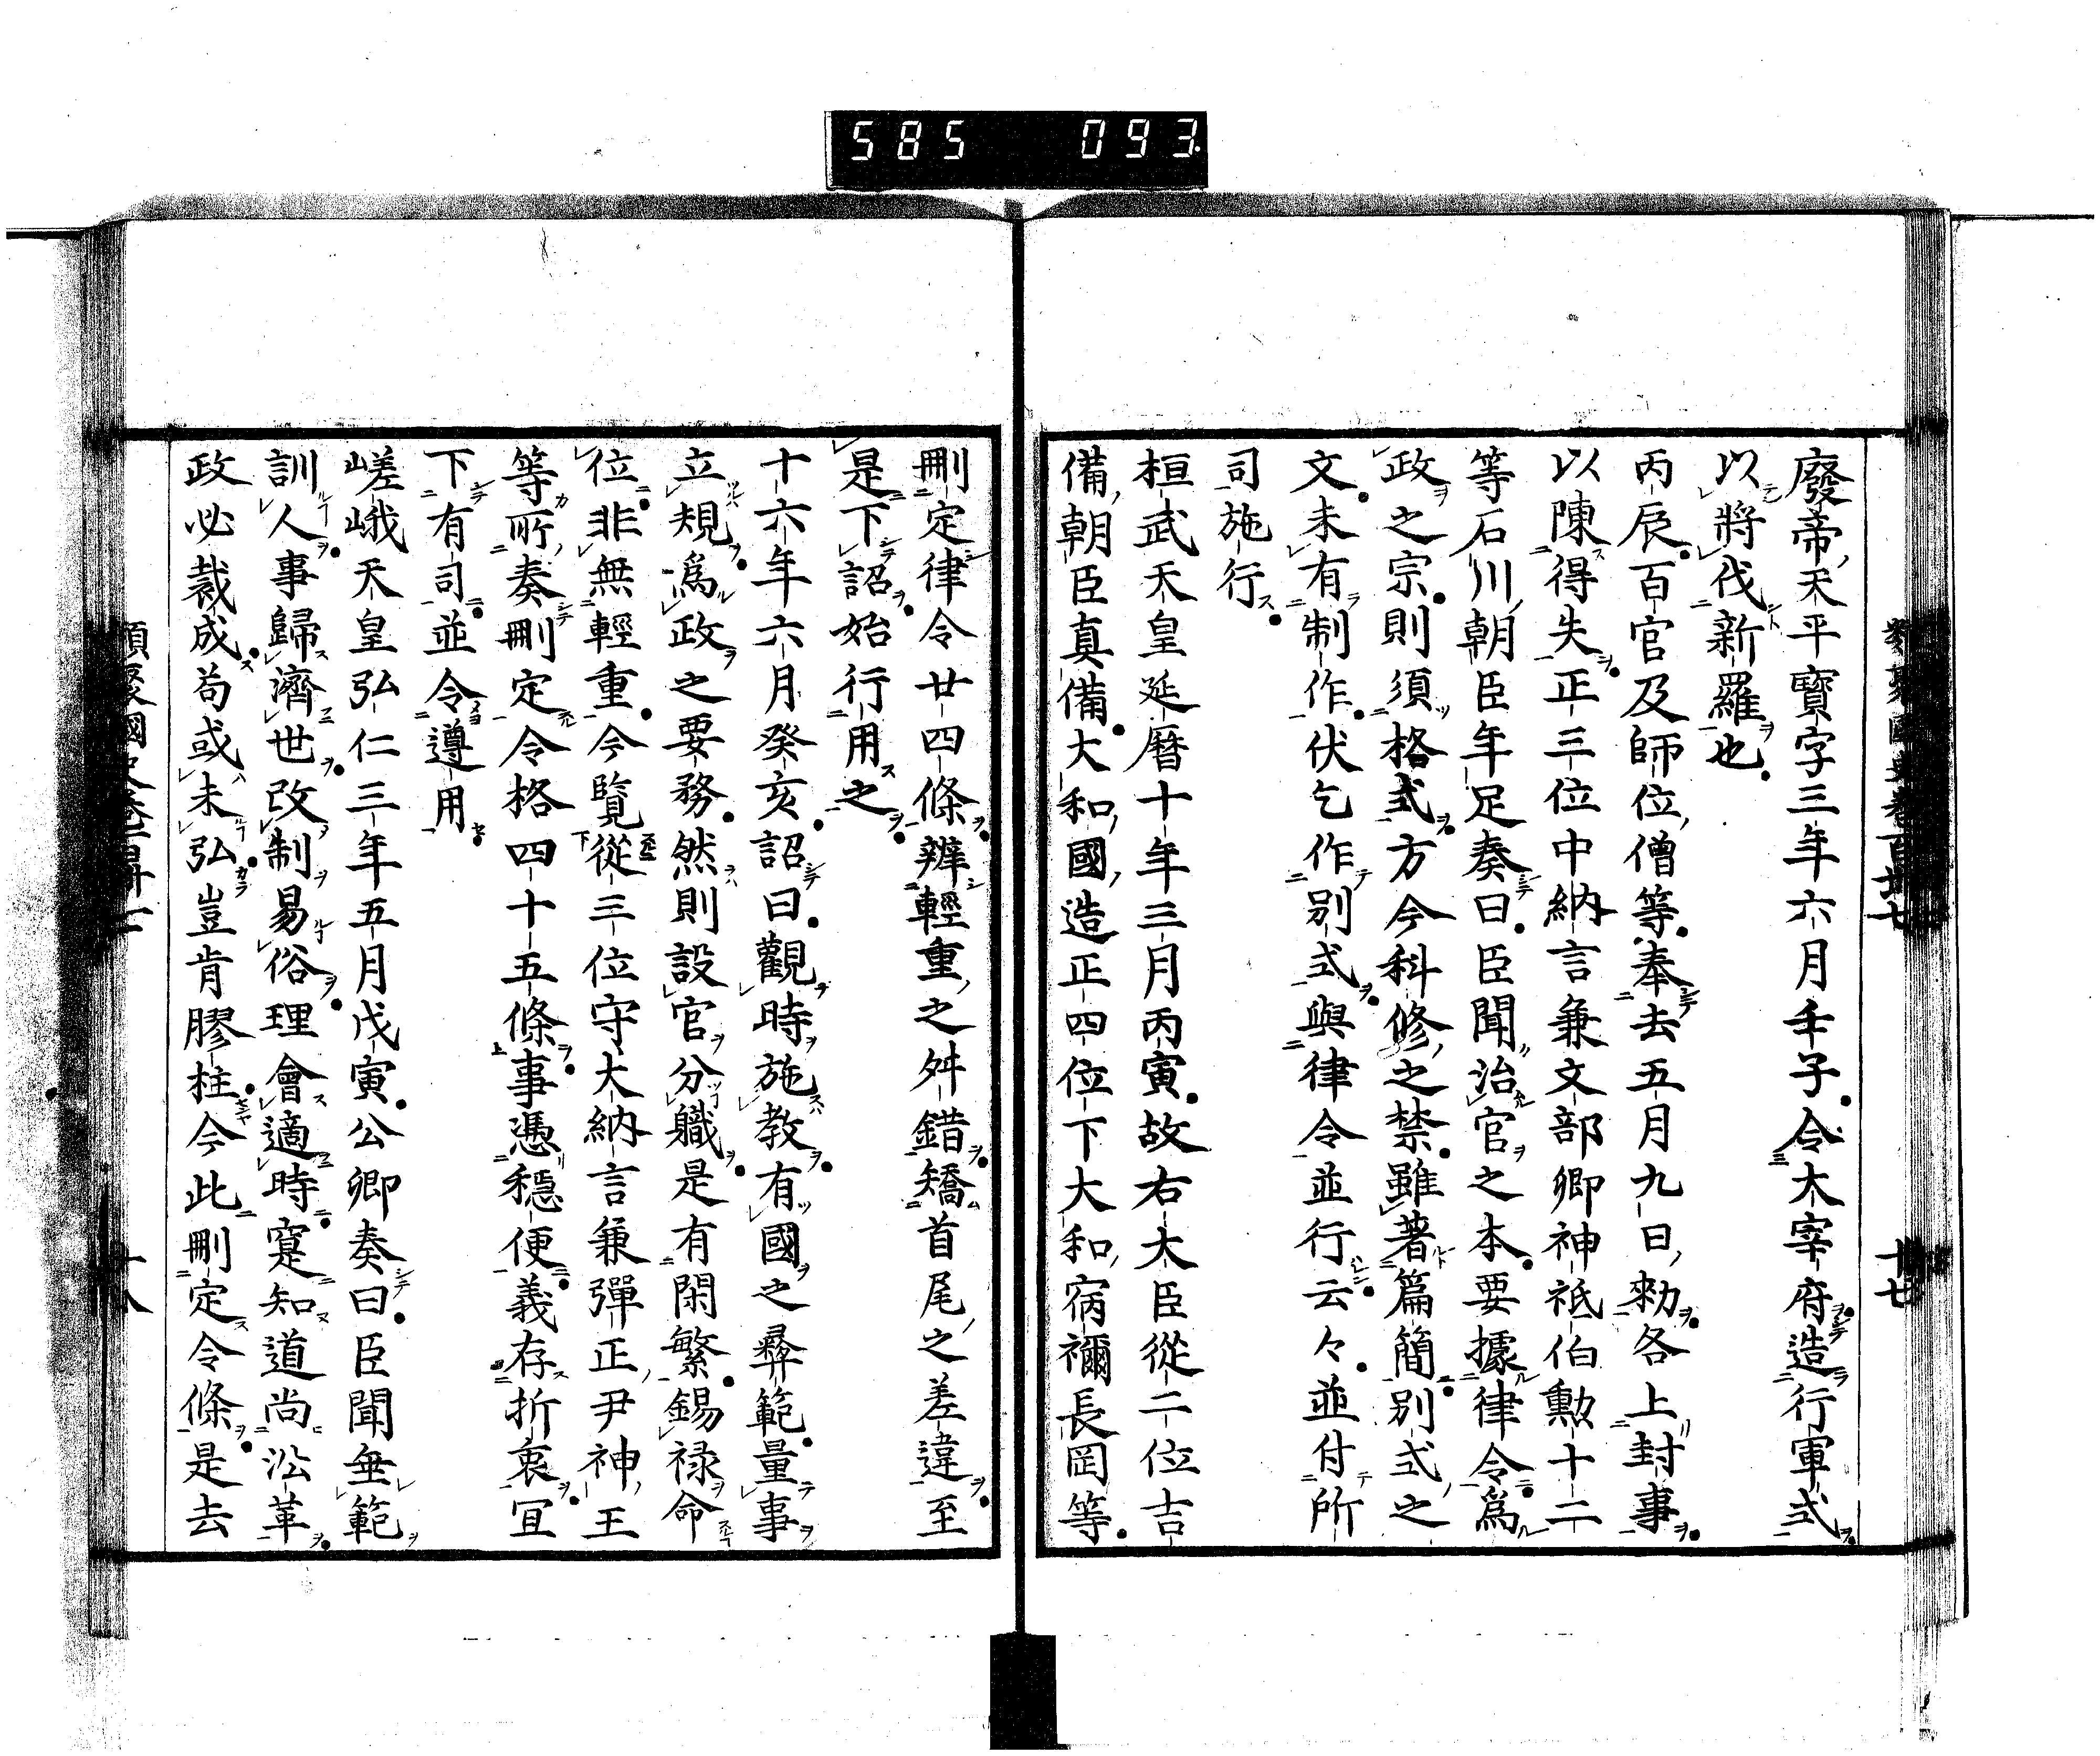 585 093
廢帝天平寳字三年六月壬子令大宰府造行軍式
以將伐新羅也
丙辰百官及師位僧等奉去五月九日勅各上封事
以陳得失正三位中納言兼文部卿神祇伯勲十二
等石川朝臣年足奏曰臣聞治官之本要據律令爲
政之宗則須格式方今科條之禁雖著篇簡別式之
文未有制作伏乞作別式與律令並行云々並付所
司施行
桓武天皇延暦十年三月丙寅故右大臣從二位吉
備朝臣真備大和國造正四位下大和宿禰長岡等
刪定律令廿四條辨輕重之舛錯矯首尾之差違至
是下詔始行用之
十六年六月癸亥詔曰觀時施教有國之彛範量事
立規爲政之要務然則設官分軄是有閑繁錫禄命
位非無輕重今覽從三位守大納言兼彈正尹神王
等所奏刪定令格四十五條事憑穩便義存折衷宜
下有司並令遵用
嵯峨天皇弘仁三年五月戊寅公卿奏曰臣聞垂範
訓人事歸濟世改制易俗理會適時寔知道尚沿革
政必裁成苟或未弘豈肯膠柱今此刪定令條是去